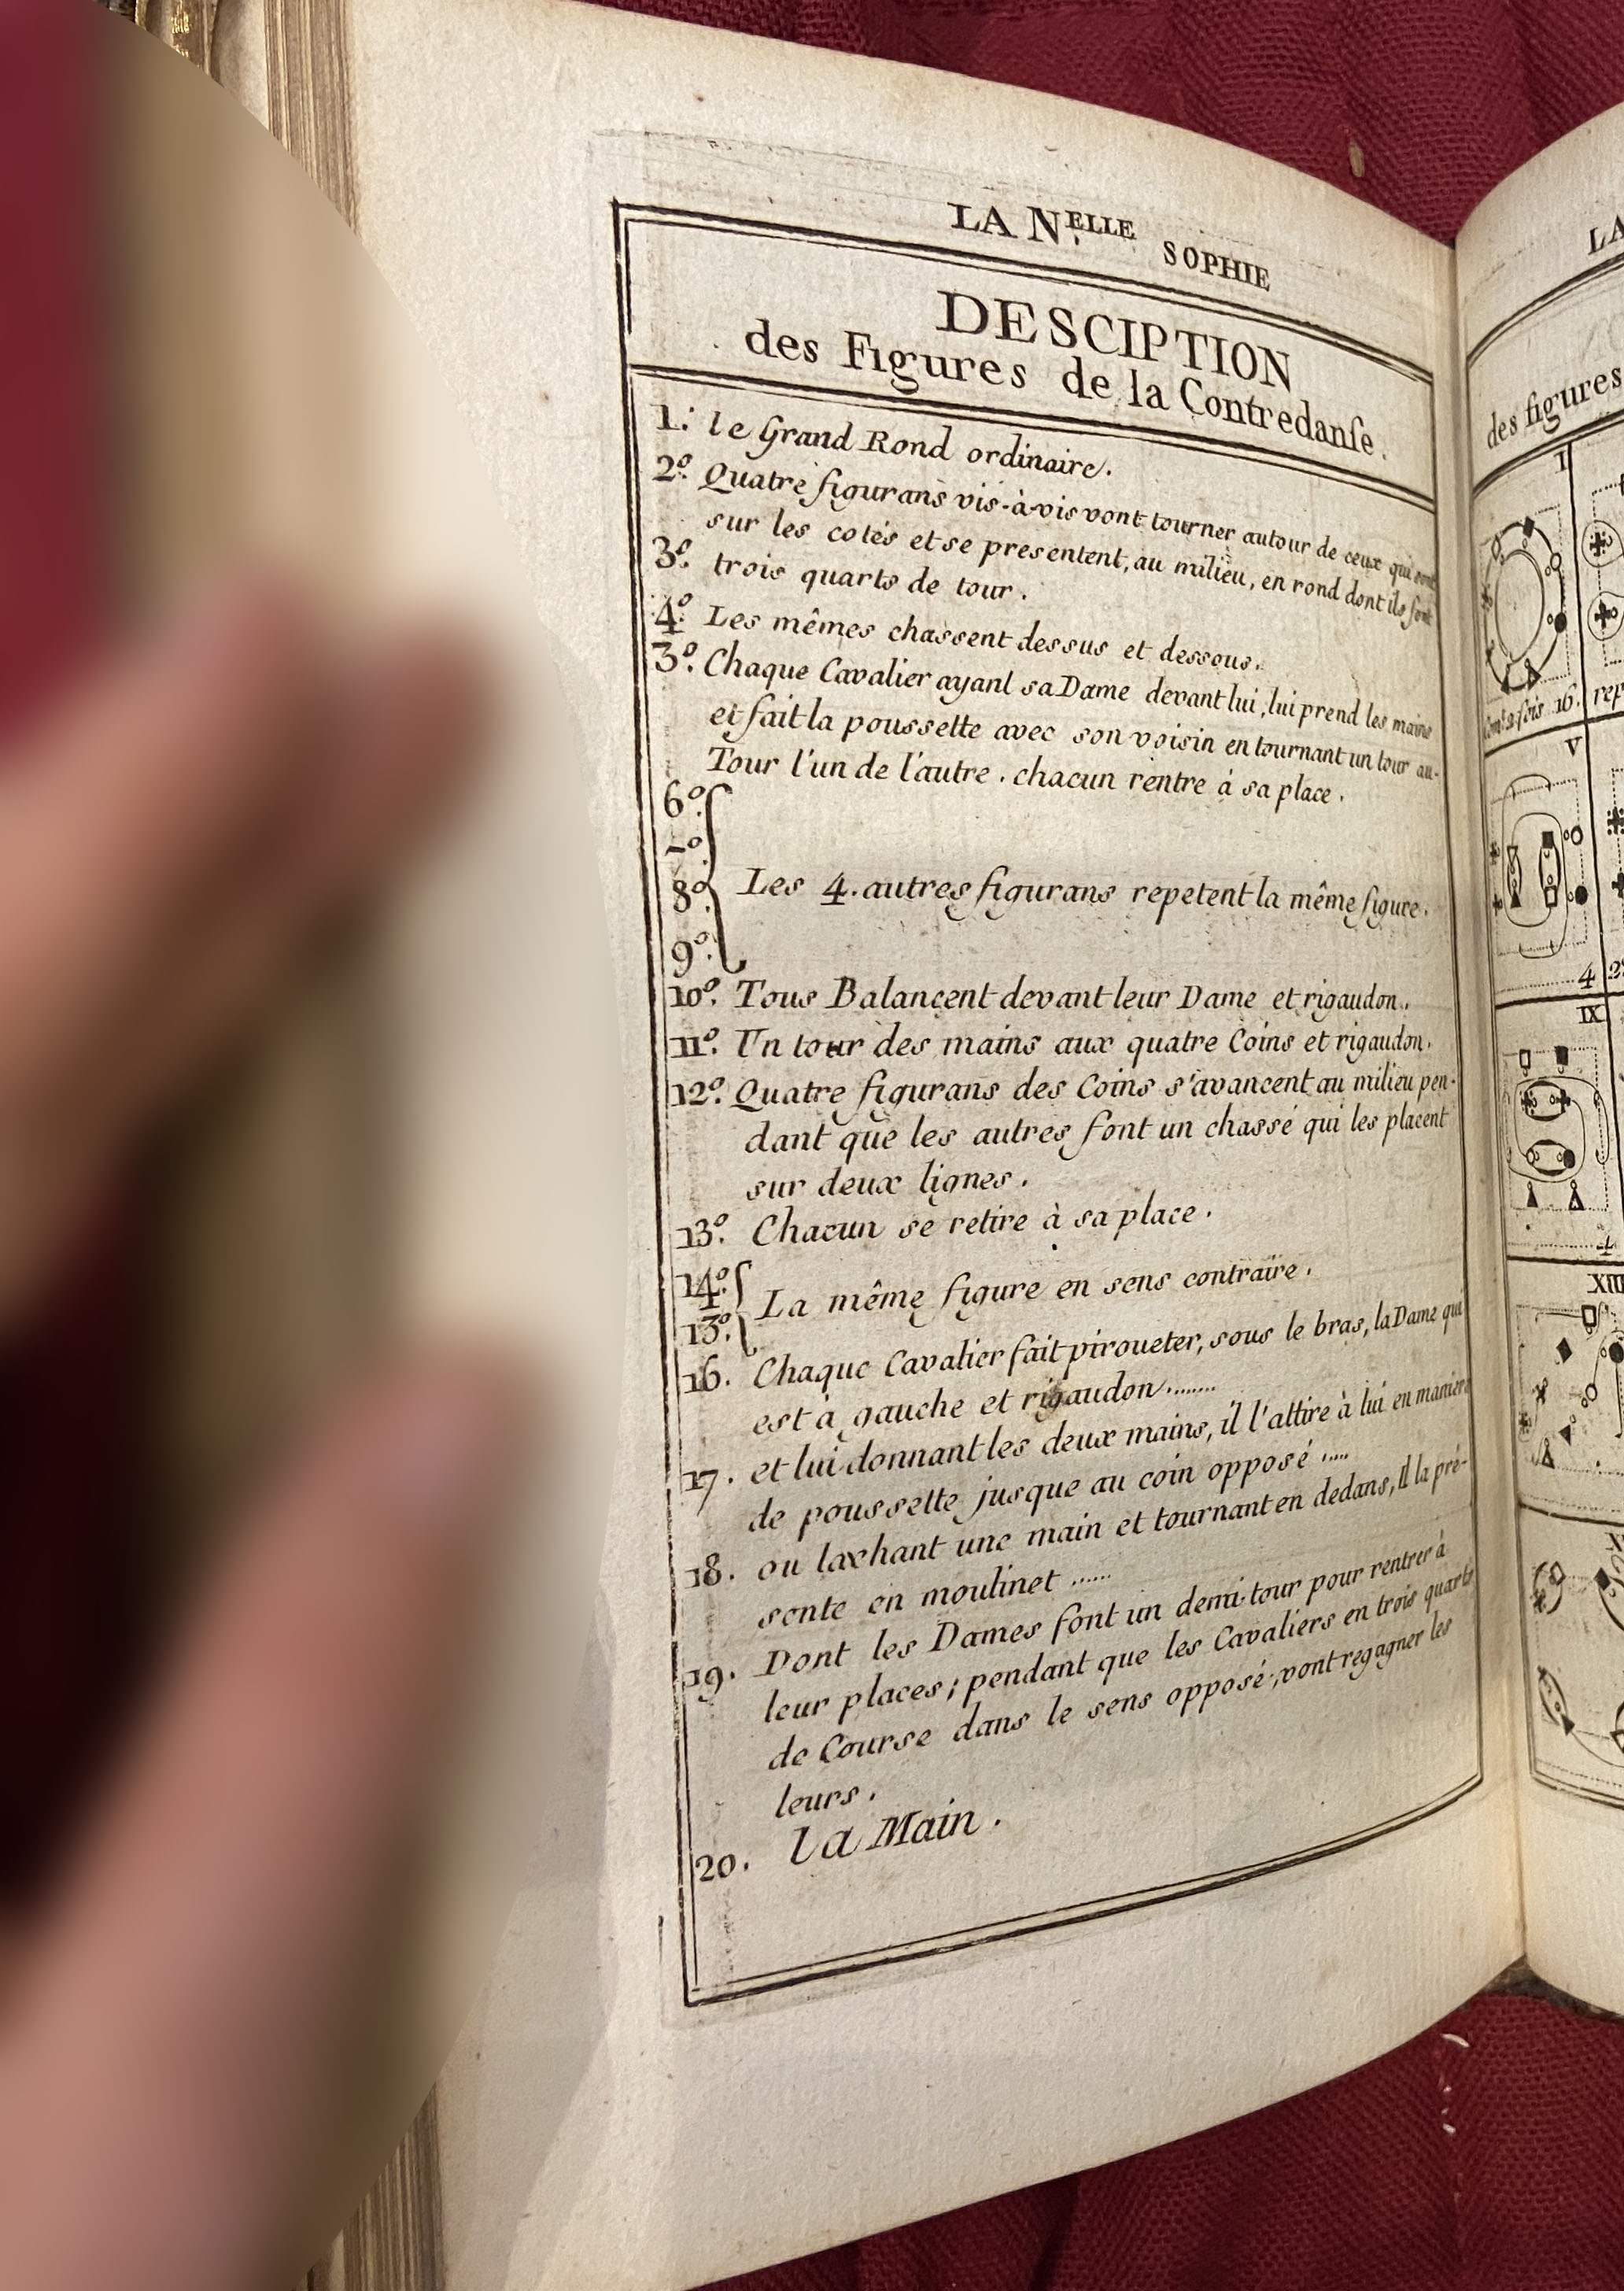 LA N.ELLE SOPHIE
DESCIPTION
des Figures de la Contredanſe.
1.° le Grand Rond ordinaire.
2.° Quatre figurans vis-à-vis vont tourner autour de ceux qui sont
sur les cotés et se presentent, au milieu, en rond dont ils font
3.° trois quarts de tour.
4.° Les mêmes chassent dessus et dessous.
3.° Chaque Cavalier ayant sa Dame devant lui, lui prend les mains
et fait la poussette avec son voisin en tournant un tour au-
Tour l'un de l'autre. chacun rentre à sa place.
6.°
-°
8.° Les 4. autres figurans repetent la même figure.
9.°
10.° Tous Balancent devant leur Dame et rigaudon.
11.° Un tour des mains aux quatre Coins et rigaudon.
12.° Quatre figurans des Coins s'avancent au milieu pen-
dant que les autres font un chassé qui les placent
sur deux lignes.
13.° Chacun se retire à sa place.
14.° La même figure en sens contraire.
13.°
16. Chaque Cavalier fait piroueter, sous le bras, la Dame qui
est à gauche et rigaudon........
17. et lui donnant les deux mains, il l'attire à lui en maniere
de poussette jusque au coin opposé .....
18. ou laxhant une main et tournant en dedans, Il la pré-
sente en moulinet ......
19. Dont les Dames font un demi-tour pour rentrer à
leur places; pendant que les Cavaliers en trois quarts
de Course dans le sens opposé, vont regagner les
leurs.
20. la Main.
LA
des figures
I
16.
V
4
IX
4
XIII